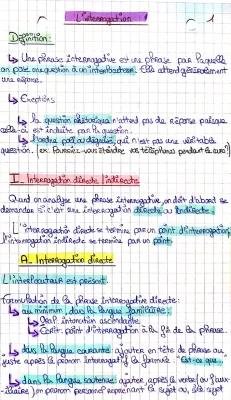 L'interrogation
1
Définition:
↳ Une phrase interrogative est une phrase par laquelle
on pose une question à un interlocuteur. Elle attend généralement
une réponse.
↳ Exceptions
↳ la question rhétorique n'attend pas de réponse puisque
celle-ci est induite par la question.
↳ l'ordre poli ou déguisé, qui n'est pas une véritable
question. (ex: Pouvez-vous éteindre vos téléphones pendant le cours?)
I_ Interrogation directe / indirecte
Quand on analyse une phrase interrogative, on doit d'abord se
demander si c'est une interrogation directe ou indirecte.
L'interrogation directe se termine par un point d'interrogation,
l'interrogation indirecte se termine par un point.
A_ Interrogation directe
L'interlocuteur est présent.
Formulation de la phrase interrogative directe:
↳ au minimum, dans la langue familière:
↳ Oral: intonation ascendante.
↳ Écrit: point d'interrogation à la fin de la phrase.
↳ dans la langue courante: ajouter en tête de phrase ou
juste après le pronom interrogatif la formule "Est-ce que"
↳ dans la langue soutenue: ajouter, après le verbe (ou l'auxi-
liaire) un pronom personnel reprenant le sujet ou, si le sujet